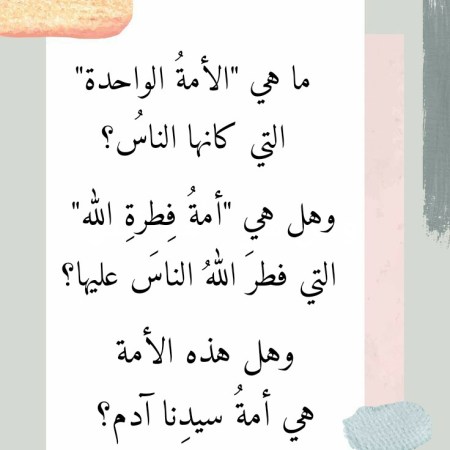 ما هي "الأمةُ الواحدة"
التي كانها الناسُ؟
وهل هي "أمةُ فِطرةِ الله"
التي فطرَ اللهُ الناسَ عليها؟
وهل هذه الأمة
هي أمةُ سيدِنا آدم؟